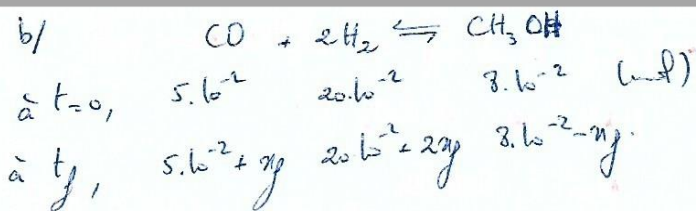 b/ CO + 2H₂ ⇌ CH₃OH
à t=0, 5.10⁻² 20.10⁻² 8.10⁻² (mol)
à t_f, 5.10⁻² + x_f 20.10⁻² + 2x_f 8.10⁻² - x_f.